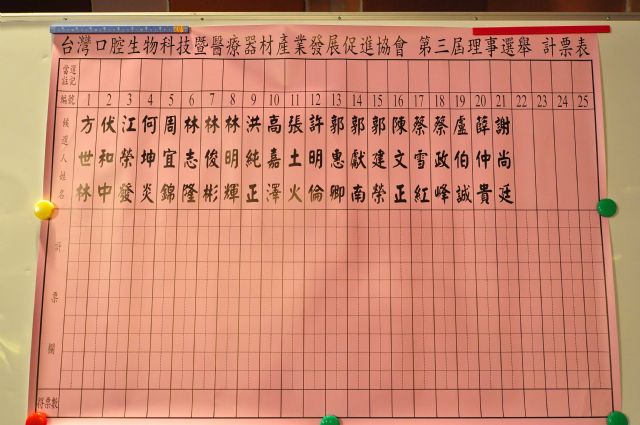 台灣口腔生物科技暨醫療器材產業發展促進協會 第三屆理事選舉 計票表
當選註記
編號 1 2 3 4 5 6 7 8 9 10 11 12 13 14 15 16 17 18 19 20 21 22 23 24 25
候選人姓名 方世林 伏和中 江榮發 何坤炎 周宜錦 林志隆 林俊彬 林明輝 洪純正 高嘉澤 張土火 許明倫 郭惠卿 郭獻南 郭建榮 陳文正 蔡雪紅 蔡政峰 盧伯誠 薛仲貴 謝尚廷
計票欄
得票數